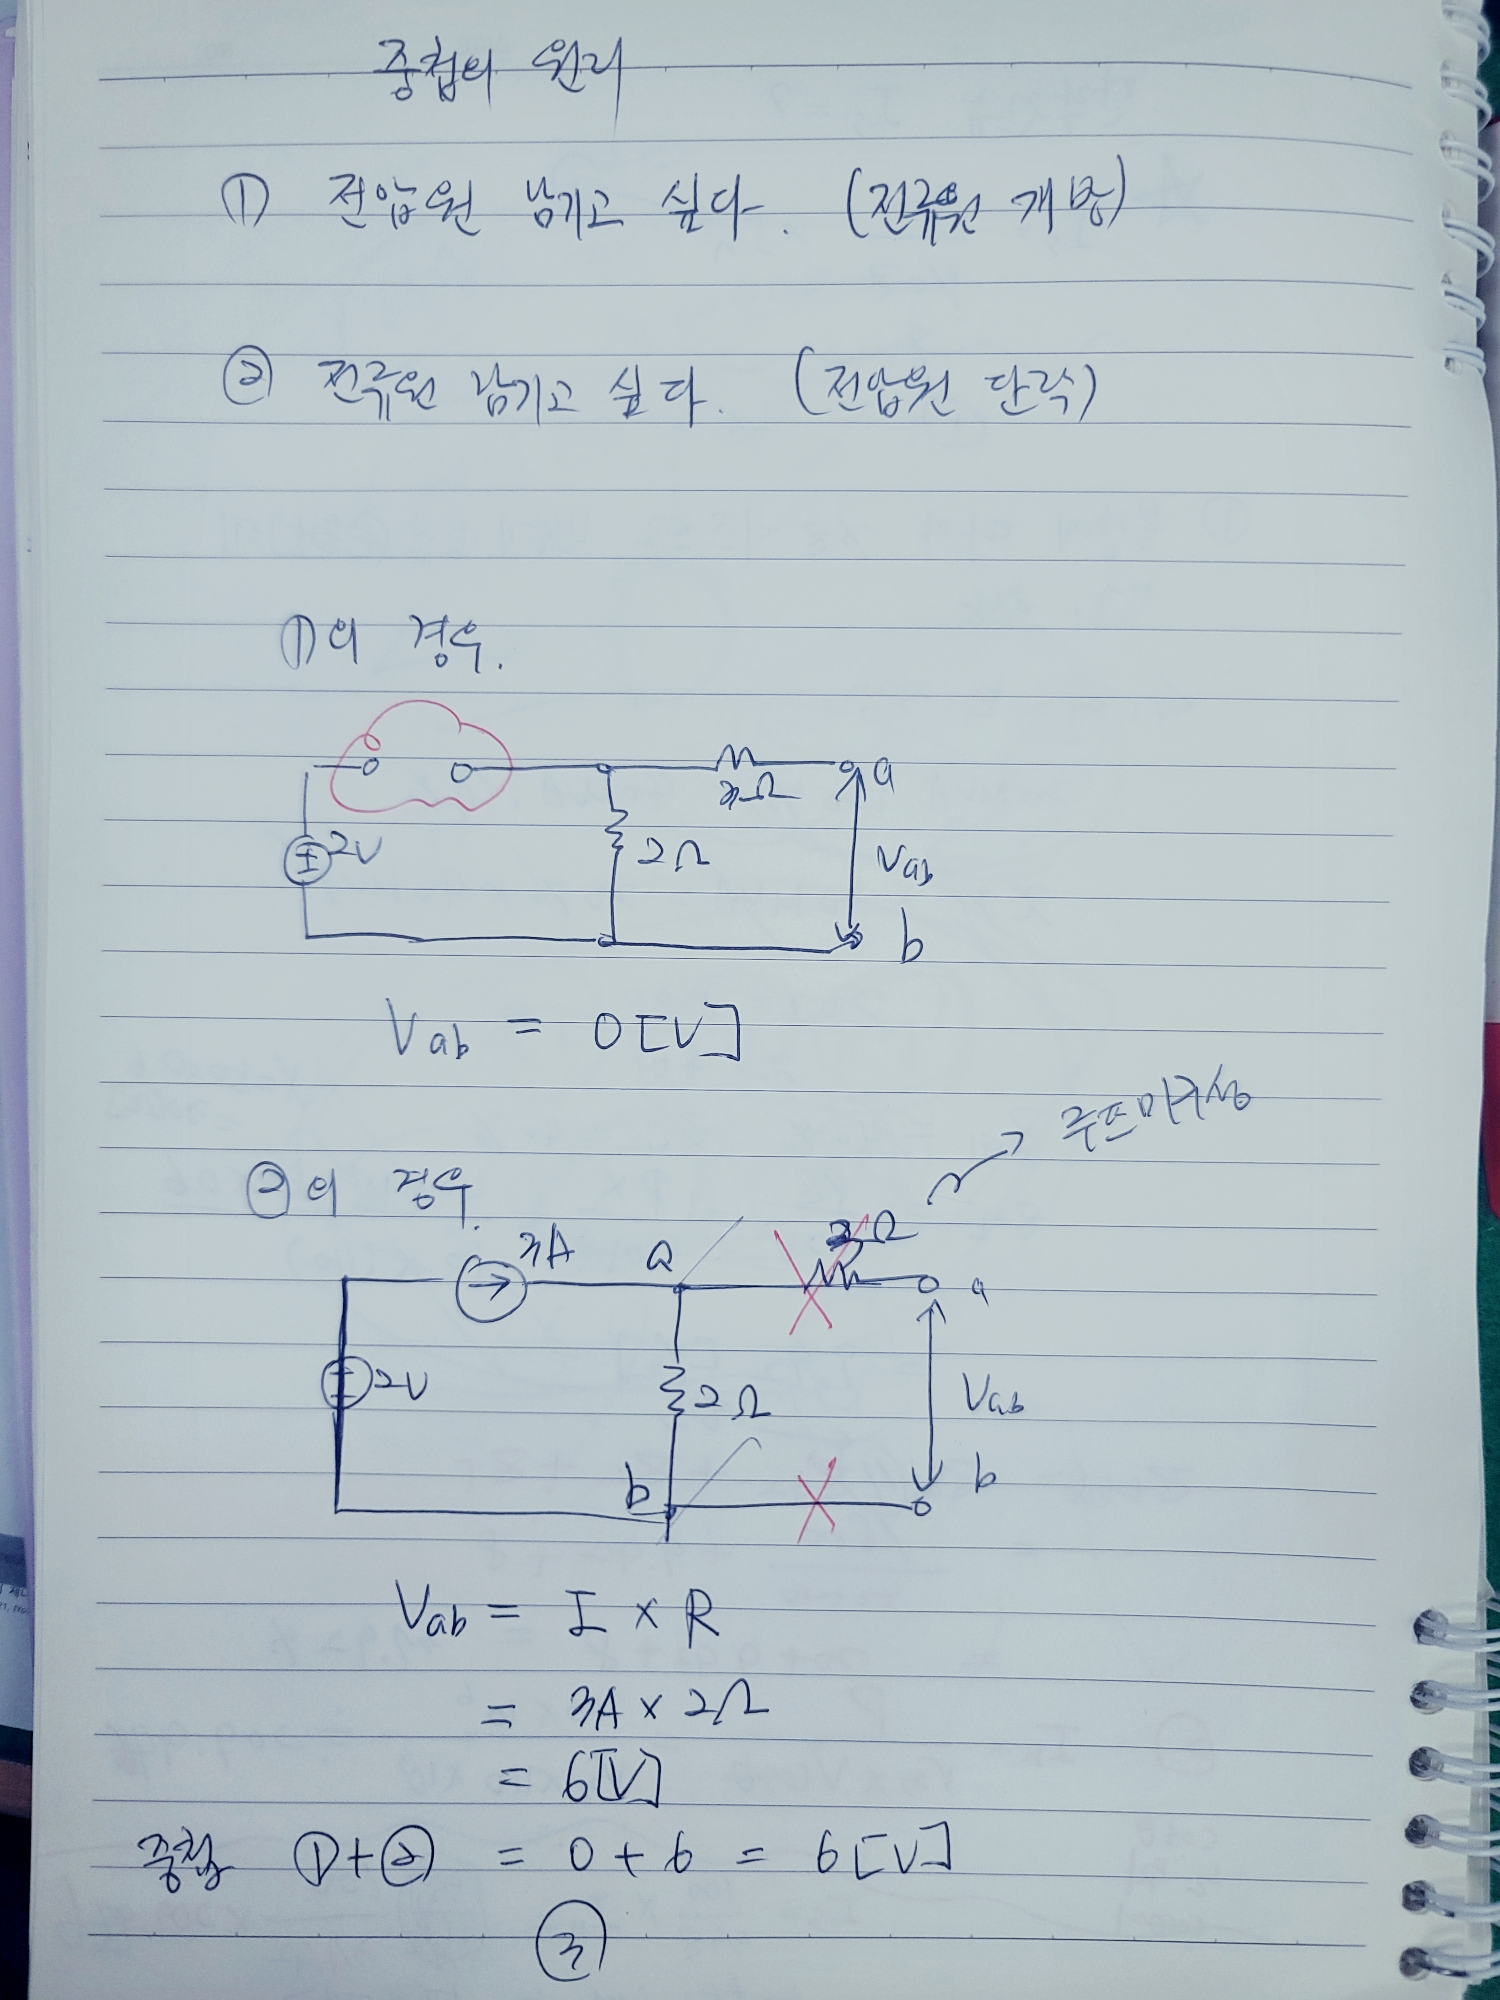 중첩의 원리
① 전압원 남기고 싶다. (전류원 개방)
② 전류원 남기고 싶다. (전압원 단락)
①의 경우.
3Ω a
2V 2Ω Vab
b
Vab = 0[V]
루프미구성
②의 경우.
3A a 3Ω a
2V 2Ω Vab
b b
Vab = I × R
= 3A × 2Ω
= 6[V]
중첩 ①+② = 0 + 6 = 6[V]
③